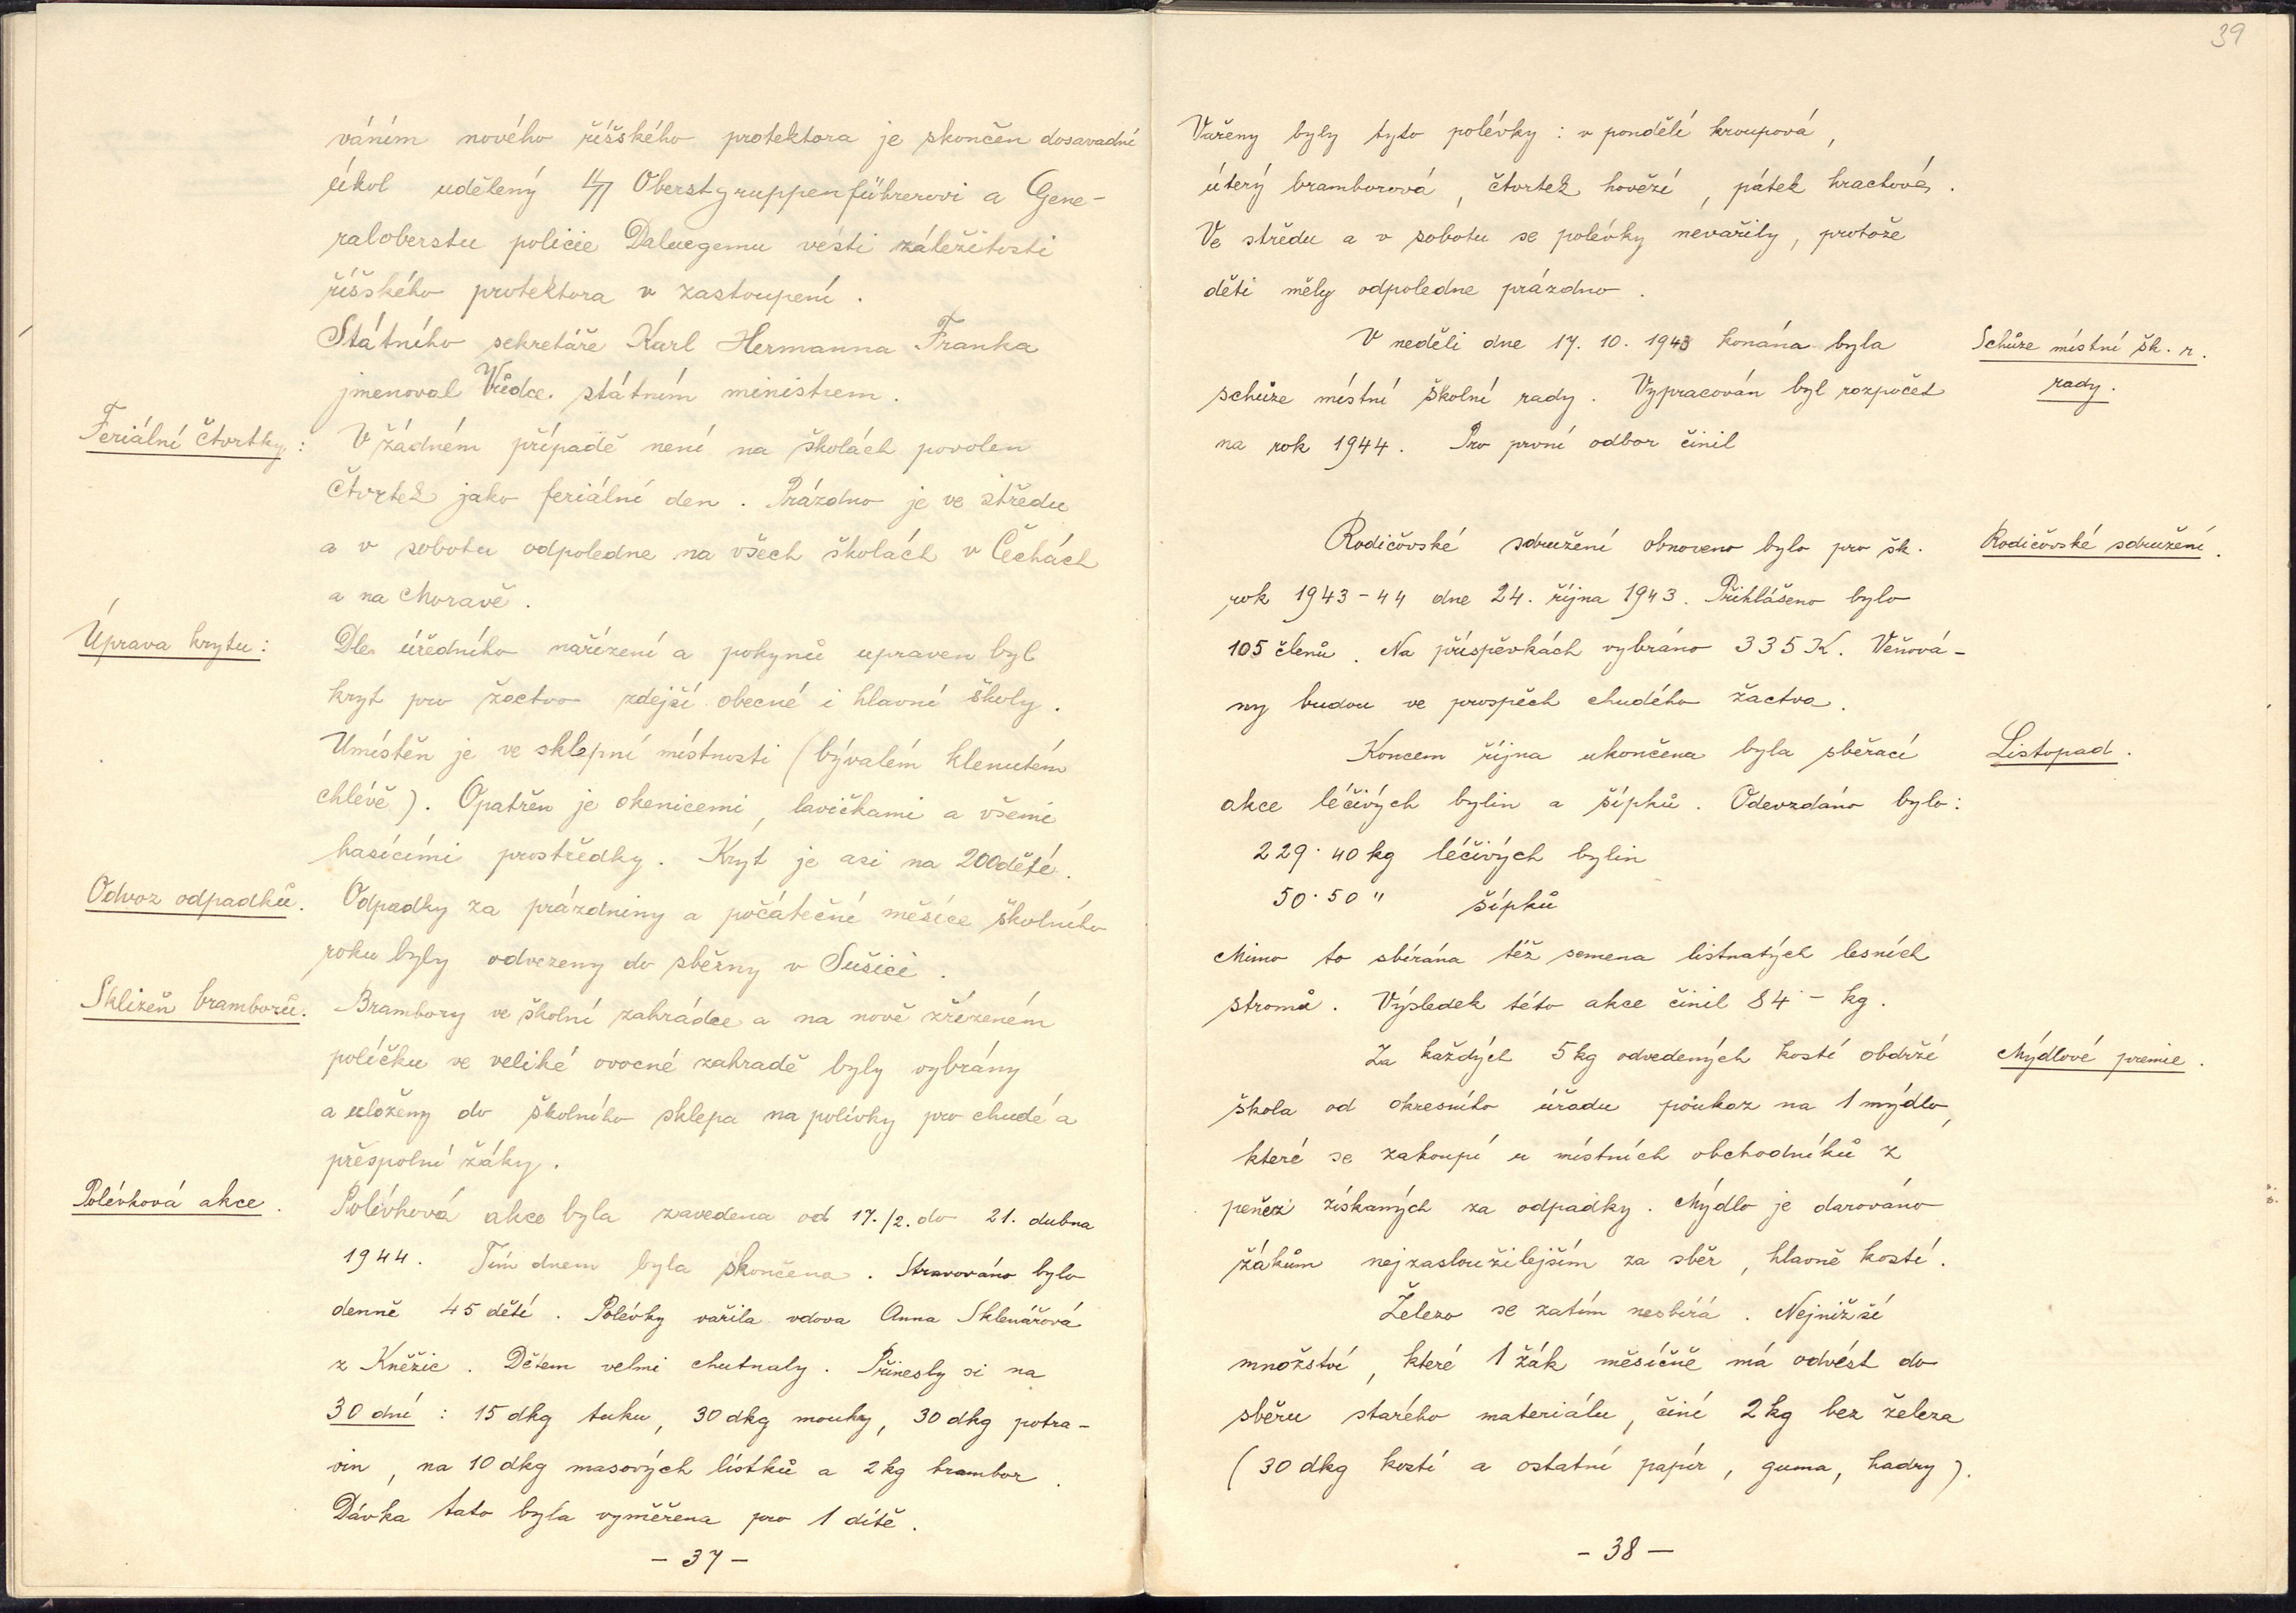 váním nového říšského protektora je skončen dosavadní
úkol udělený SS Oberstgruppenführerovi a Gene-
raloberstu policie Daluegemu vésti záležitosti
říšského protektora v zastoupení.
Státního sekretáře Karl Hermanna Franka
jmenoval Vůdce státním ministrem.
Feriální čtvrtky:
V žádném případě není na školách povolen
čtvrtek jako feriální den. Prázdno je ve středu
a v sobotu odpoledne na všech školách v Čechách
a na Moravě.
Úprava krytu:
Dle úředního nařízení a pokynů upraven byl
kryt pro žactvo zdejší obecné i hlavní školy.
Umístěn je ve sklepní místnosti (bývalém klenutém
chlévě). Opatřen je okenicemi, lavičkami a všemi
hasícími prostředky. Kryt je asi na 200 dětí.
Odvoz odpadků.
Odpadky za prázdniny a počáteční měsíce školního
roku byly odvezeny do sběrny v Sušici.
Sklizeň bramborů.
Brambory ve školní zahrádce a na nově zřízeném
políčku ve veliké ovocné zahradě byly vybrány
a uloženy do školního sklepa na polívky pro chudé a
přespolní žáky.
Polévková akce.
Polévková akce byla zavedena od 17./2. do 21. dubna
1944. Tím dnem byla skončena. Stravováno bylo
denně 45 dětí. Polévky vařila vdova Anna Sklenářová
z Kněžic. Dětem velmi chutnaly. Přinesly si na
30 dní: 15 dkg tuku, 30 dkg mouky, 30 dkg potra-
vin, na 10 dkg masových lístků a 2 kg brambor.
Dávka tato byla vyměřena pro 1 dítě.
- 37 -
39
Vařeny byly tyto polévky: v pondělí kroupová,
úterý bramborová, čtvrtek hovězí, pátek hrachová.
Ve středu a v sobotu se polévky nevařily, protože
děti měly odpoledne prázdno.
V neděli dne 17. 10. 1943 konána byla
Schůze místní šk. r.
rady.
schůze místní školní rady. Vypracován byl rozpočet
na rok 1944. Pro první odbor činil
Rodičovské sdružení obnoveno bylo pro šk.
Rodičovské sdružení.
rok 1943-44 dne 24. října 1943. Přihlášeno bylo
105 členů. Na příspěvkách vybráno 335 K. Věnová-
ny budou ve prospěch chudého žactva.
Koncem října ukončena byla sběrací
Listopad.
akce léčivých bylin a šípků. Odevzdáno bylo:
229·40 kg léčivých bylin
50·50 " šípků
Mimo to sbírána též semena listnatých lesních
stromů. Výsledek této akce činil 84·- kg.
Za každých 5 kg odvedených kostí obdrží
Mýdlové premie.
škola od okresního úřadu poukaz na 1 mýdlo,
které se zakoupí u místních obchodníků z
peněz získaných za odpadky. Mýdlo je darováno
žákům nejzasloužilejším za sběr, hlavně kostí.
Železo se zatím nesbírá. Nejnižší
množství, které 1 žák měsíčně má odvést do
sběru starého materiálu, činí 2 kg bez železa
(30 dkg kostí a ostatní papír, guma, hadry).
- 38 -